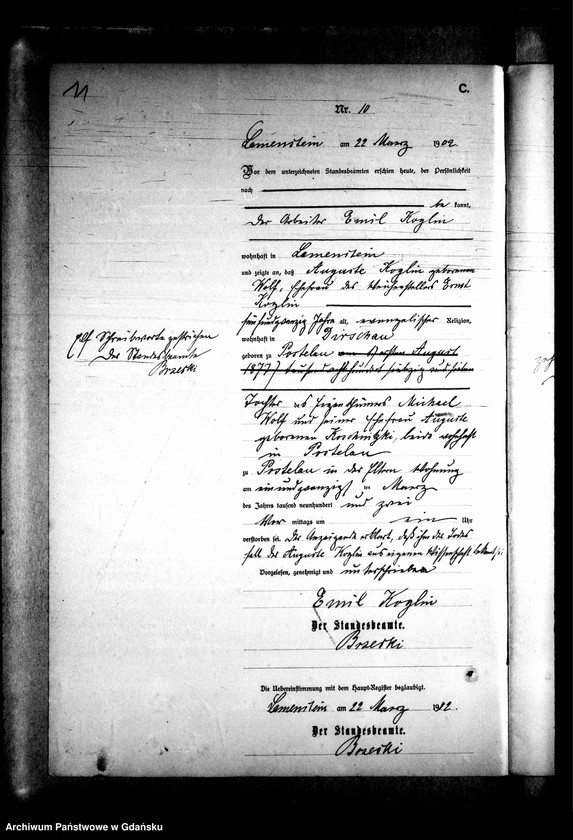 11
C.
Nr. 10
Lemenstein am 22 März 1902.
Vor dem unterzeichneten Standesbeamten erschien heute, der Persönlichkeit
nach
be kannt,
der Arbeiter Emil Koglin
wohnhaft in Lemenstein
und zeigte an, daß Auguste Koglin geborenen
Wolf, Ehefrau des Weichenstellers Ernst
Koglin
fünfundzwanzig Jahre alt, evangelischer Religion,
wohnhaft in Dirschau
geboren zu Postelau am August
1877) tausend achthundert siebzig und sieben
elf Schreibworte gestrichen
Der Standesbeamte
Brzeski
Tochter des Eigenthümers Michael
Wolf und seiner Ehefrau Auguste
geborenen beide wohnhaft
in Postelau
zu Postelau in der Eltern Wohnung
am einundzwanzigsten März
des Jahres tausend neunhundert und zwei
Vor mittags um ein Uhr
verstorben sei. Der Anzeigende erklärt, daß ihm der Todes
fall der Auguste Koglin aus eigener Wissenschaft bekannt sei
Vorgelesen, genehmigt und unterschrieben
Emil Koglin
Der Standesbeamte.
Brzeski
Die Uebereinstimmung mit dem Haupt-Register beglaubigt.
Lemenstein am 22 März 1902.
Der Standesbeamte.
Brzeski
Archiwum Państwowe w Gdańsku